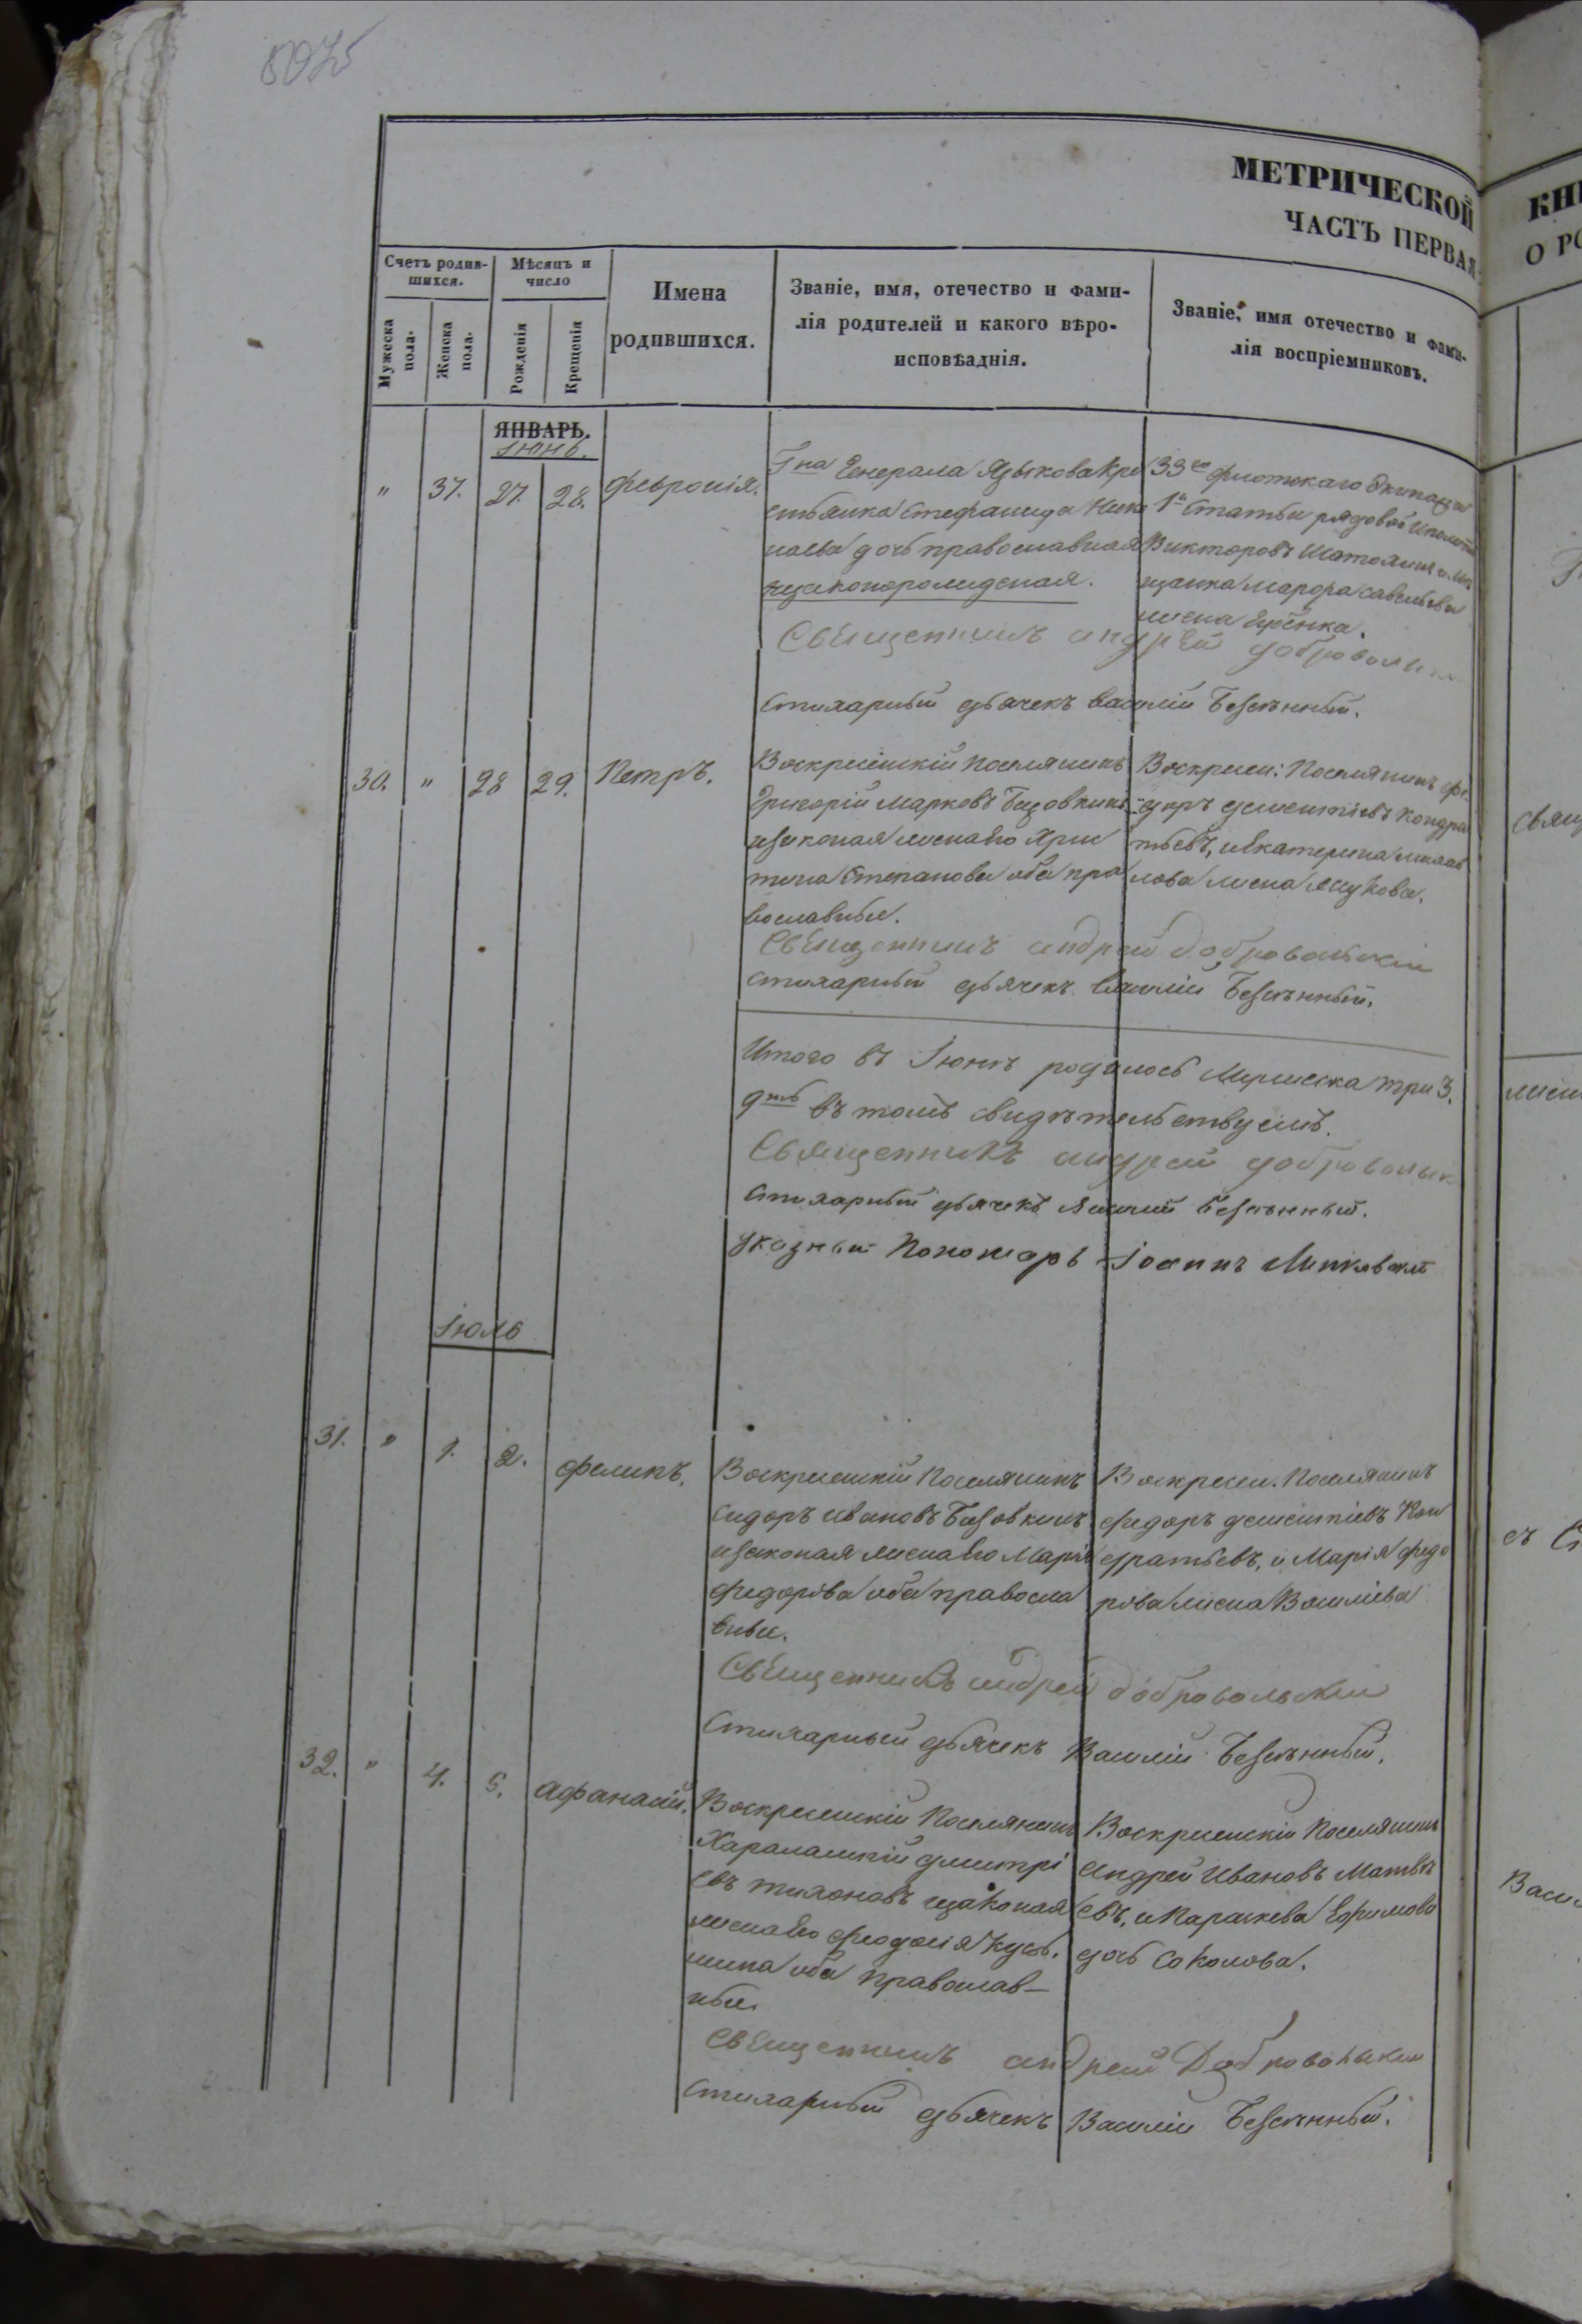 МЕТРИЧЕСКОЙ
ЧАСТЬ ПЕРВАЯ
КНИ
О РО
Счетъ родив-
шихся.
Мужеска
пола.
Женска
пола.
Мѣсяцъ и
число
Рожденія
Крещенія
Имена
родившихся.
Званіе, имя, отечество и фами-
лія родителей и какого вѣро-
исповѣаднія.
Званіе, имя отечество и фами-
лія воспріемниковъ.
ЯНВАРЬ.
Іюнь.
" 37. 27. 28. Февронія.
Гна Генерала Языкова Кре
стьянка Стефанида Нико
лаева дочь православная
незаконорожденная.
33го Флотскаго Экипажа
1й Статьи рядовой
Викторовъ
щанка Марфа Савельева
жена
Священникъ Андрей Добровольск
Стихарный дьячекъ Василій Безсѣнный.
30. " 28 29. Петръ.
Воскресенскій Поселянинъ
Григорій Марковъ
и законая жена его Хрис
тина Степанова оба пра
вославные.
Воскресен: Поселянинъ Фе
доръ Дементіевъ Кондра
тьевъ, и Екатерина
лова жена
Священникъ Андрей Добровольскій
Стихарный дьячекъ Василій Безсѣнный.
Итого въ Іюнѣ родилось Мужеска три 3.
въ томъ свидѣтельствуемъ.
Священникъ Андрей Добровольск
Стихарный дьячекъ Василій Безсѣнный.
Указный Пономарь Іоаннъ
Іюль
31. " 1. 2. Филипъ.
Воскресенскій Поселянинъ
Сидоръ Ивановъ Базовкинъ
и законая жена его Марія
Федорова оба правосла
вные.
Воскресен. Поселянинъ
Федоръ Дементіевъ Кон
дратьевъ, и Марія Федо
рова жена Василіева
Священникъ Андрей Добровольскій
Стихарный дьячекъ Василій Безсѣнный.
32. " 4. 5. Афанасій.
Воскресенскій Поселянинъ
Харлампій Дмитрі
евъ Тихоновъ и законая
жена его Феодосія Кузь.
мина оба православ-
ные.
Воскресенскій Поселянинъ
Андрей Ивановъ Матвѣ
евъ, и Параскева Ефимова
дочь Соколова.
Священникъ Андрей Добровольскій
Стихарный дьячекъ Василій Безсѣнный.